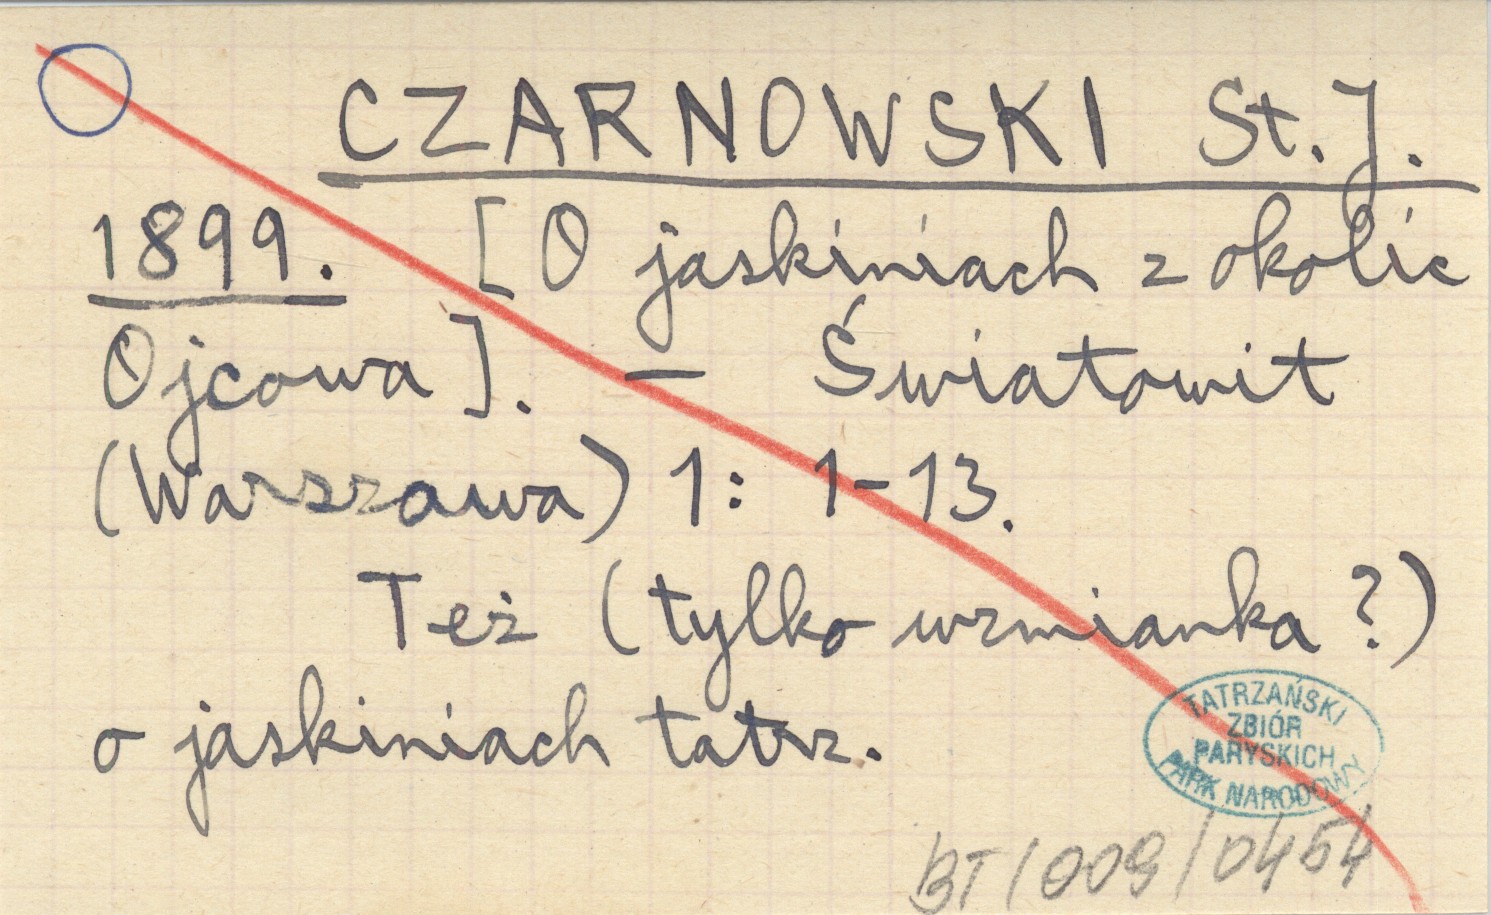 CZARNOWSKI St. J.
1899. [O jaskiniach z okolic
Ojcowa]. – Światowit
(Warszawa) 1: 1-13.
Też (tylko wzmianka?)
o jaskiniach tatrz.
TATRZAŃSKI
ZBIÓR
PARYSKICH
PARK NARODOWY
BT/009/0454